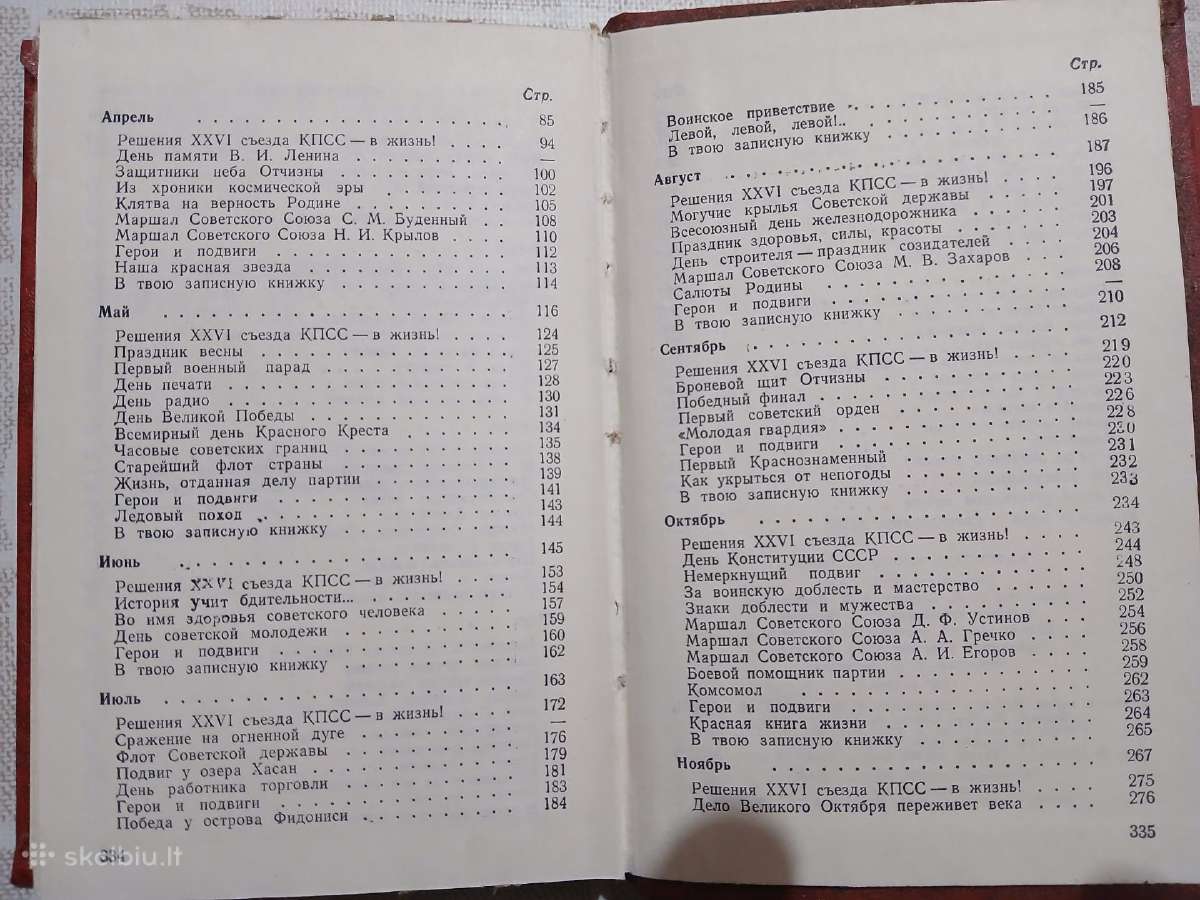 Стр.
Апрель . . . . . . . . . . . . . . . . . . 85
Решения XXVI съезда КПСС — в жизнь! . . . . 94
День памяти В. И. Ленина . . . . . . . . . . —
Защитники неба Отчизны . . . . . . . . . . . 100
Из хроники космической эры . . . . . . . . . 102
Клятва на верность Родине . . . . . . . . . . 105
Маршал Советского Союза С. М. Буденный . . 108
Маршал Советского Союза Н. И. Крылов . . . . 110
Герои и подвиги . . . . . . . . . . . . . . . 112
Наша красная звезда . . . . . . . . . . . . . 113
В твою записную книжку . . . . . . . . . . . 114
Май . . . . . . . . . . . . . . . . . . . . 116
Решения XXVI съезда КПСС — в жизнь! . . . . 124
Праздник весны . . . . . . . . . . . . . . . 125
Первый военный парад . . . . . . . . . . . . 127
День печати . . . . . . . . . . . . . . . . . 128
День радио . . . . . . . . . . . . . . . . . 130
День Великой Победы . . . . . . . . . . . . 131
Всемирный день Красного Креста . . . . . . . 134
Часовые советских границ . . . . . . . . . . 135
Старейший флот страны . . . . . . . . . . . 138
Жизнь, отданная делу партии . . . . . . . . . 139
Герои и подвиги . . . . . . . . . . . . . . . 141
Ледовый поход . . . . . . . . . . . . . . . . 143
В твою записную книжку . . . . . . . . . . . 144
Июнь . . . . . . . . . . . . . . . . . . . 145
Решения XXVI съезда КПСС — в жизнь! . . . . 153
История учит бдительности... . . . . . . . . . 154
Во имя здоровья советского человека . . . . . 157
День советской молодежи . . . . . . . . . . . 159
Герои и подвиги . . . . . . . . . . . . . . . 160
В твою записную книжку . . . . . . . . . . . 162
Июль . . . . . . . . . . . . . . . . . . . . 163
Решения XXVI съезда КПСС — в жизнь! . . . . 172
Сражение на огненной дуге . . . . . . . . . . —
Флот Советской державы . . . . . . . . . . . 176
Подвиг у озера Хасан . . . . . . . . . . . . 179
День работника торговли . . . . . . . . . . . 181
Герои и подвиги . . . . . . . . . . . . . . . 183
Победа у острова Фидониси . . . . . . . . . . 184
334
skelbiu.lt
Стр.
Воинское приветствие . . . . . . . . . . . . 185
Левой, левой, левой!.. . . . . . . . . . . . . —
В твою записную книжку . . . . . . . . . . . 186
Август . . . . . . . . . . . . . . . . . . . 187
Решения XXVI съезда КПСС — в жизнь! . . . . 196
Могучие крылья Советской державы . . . . . . 197
Всесоюзный день железнодорожника . . . . . . 201
Праздник здоровья, силы, красоты . . . . . . 203
День строителя — праздник созидателей . . . . 204
Маршал Советского Союза М. В. Захаров . . . 206
Салюты Родины . . . . . . . . . . . . . . . 208
Герои и подвиги . . . . . . . . . . . . . . . —
В твою записную книжку . . . . . . . . . . . 210
Сентябрь . . . . . . . . . . . . . . . . . . 212
Решения XXVI съезда КПСС — в жизнь! . . . . 219
Броневой щит Отчизны . . . . . . . . . . . . 220
Победный финал . . . . . . . . . . . . . . . 223
Первый советский орден . . . . . . . . . . . 226
«Молодая гвардия» . . . . . . . . . . . . . . 228
Герои и подвиги . . . . . . . . . . . . . . . 230
Первый Краснознаменный . . . . . . . . . . . 231
Как укрыться от непогоды . . . . . . . . . . 232
В твою записную книжку . . . . . . . . . . . 233
Октябрь . . . . . . . . . . . . . . . . . . 234
Решения XXVI съезда КПСС — в жизнь! . . . . 243
День Конституции СССР . . . . . . . . . . . 244
Немеркнущий подвиг . . . . . . . . . . . . . 248
За воинскую доблесть и мастерство . . . . . . 250
Знаки доблести и мужества . . . . . . . . . . 252
Маршал Советского Союза Д. Ф. Устинов . . . 254
Маршал Советского Союза А. А. Гречко . . . . 256
Маршал Советского Союза А. И. Егоров . . . . 258
Боевой помощник партии . . . . . . . . . . . 259
Комсомол . . . . . . . . . . . . . . . . . . 262
Герои и подвиги . . . . . . . . . . . . . . . 263
Красная книга жизни . . . . . . . . . . . . . 264
В твою записную книжку . . . . . . . . . . . 265
Ноябрь . . . . . . . . . . . . . . . . . . . 267
Решения XXVI съезда КПСС — в жизнь! . . . . 275
Дело Великого Октября переживет века . . . . 276
335